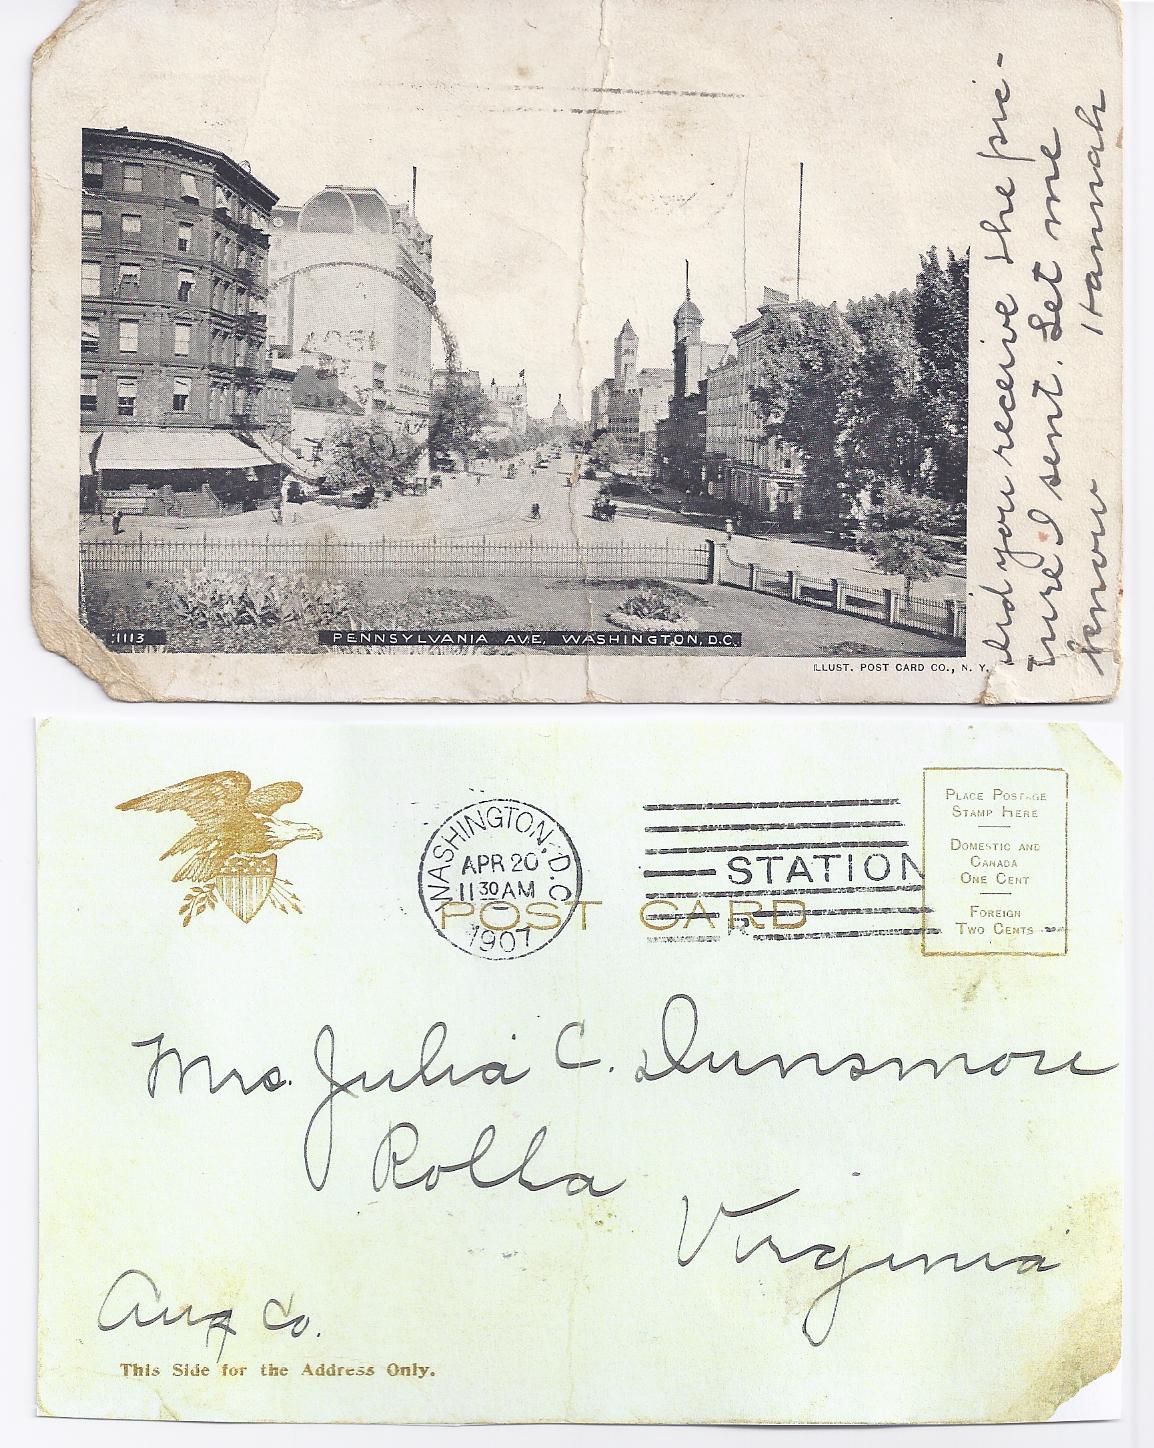 1113
PENNSYLVANIA AVE, WASHINGTON, D.C.
ILLUST. POST CARD CO., N. Y.
Did you receive the pic-
ture I sent. Let me
know Hannah
WASHINGTON, D.C.
APR 20
11 30 AM
1907
STATION
POST CARD
PLACE POSTAGE
STAMP HERE
DOMESTIC AND
CANADA
ONE CENT
FOREIGN
TWO CENTS
Mrs. Julia C. Dunsmore
Rolla
Virginia
Aug Co.
This Side for the Address Only.